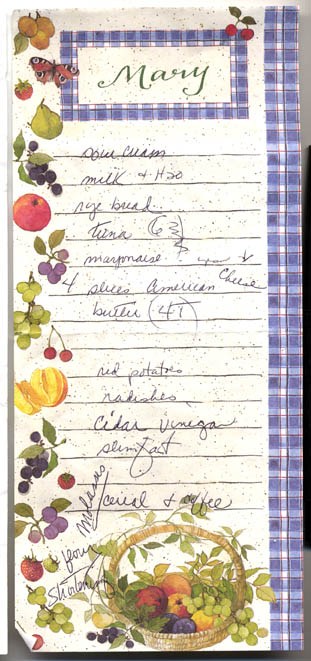 Mary
sour cream
milk + H20
rye bread
tuna (6
mayonaise
4 slices American
Cheese
butter (4T)
red potatoes
radishes
Cidar vinegar
slimfast
cereal + coffee
Molasses
flour
Shortening